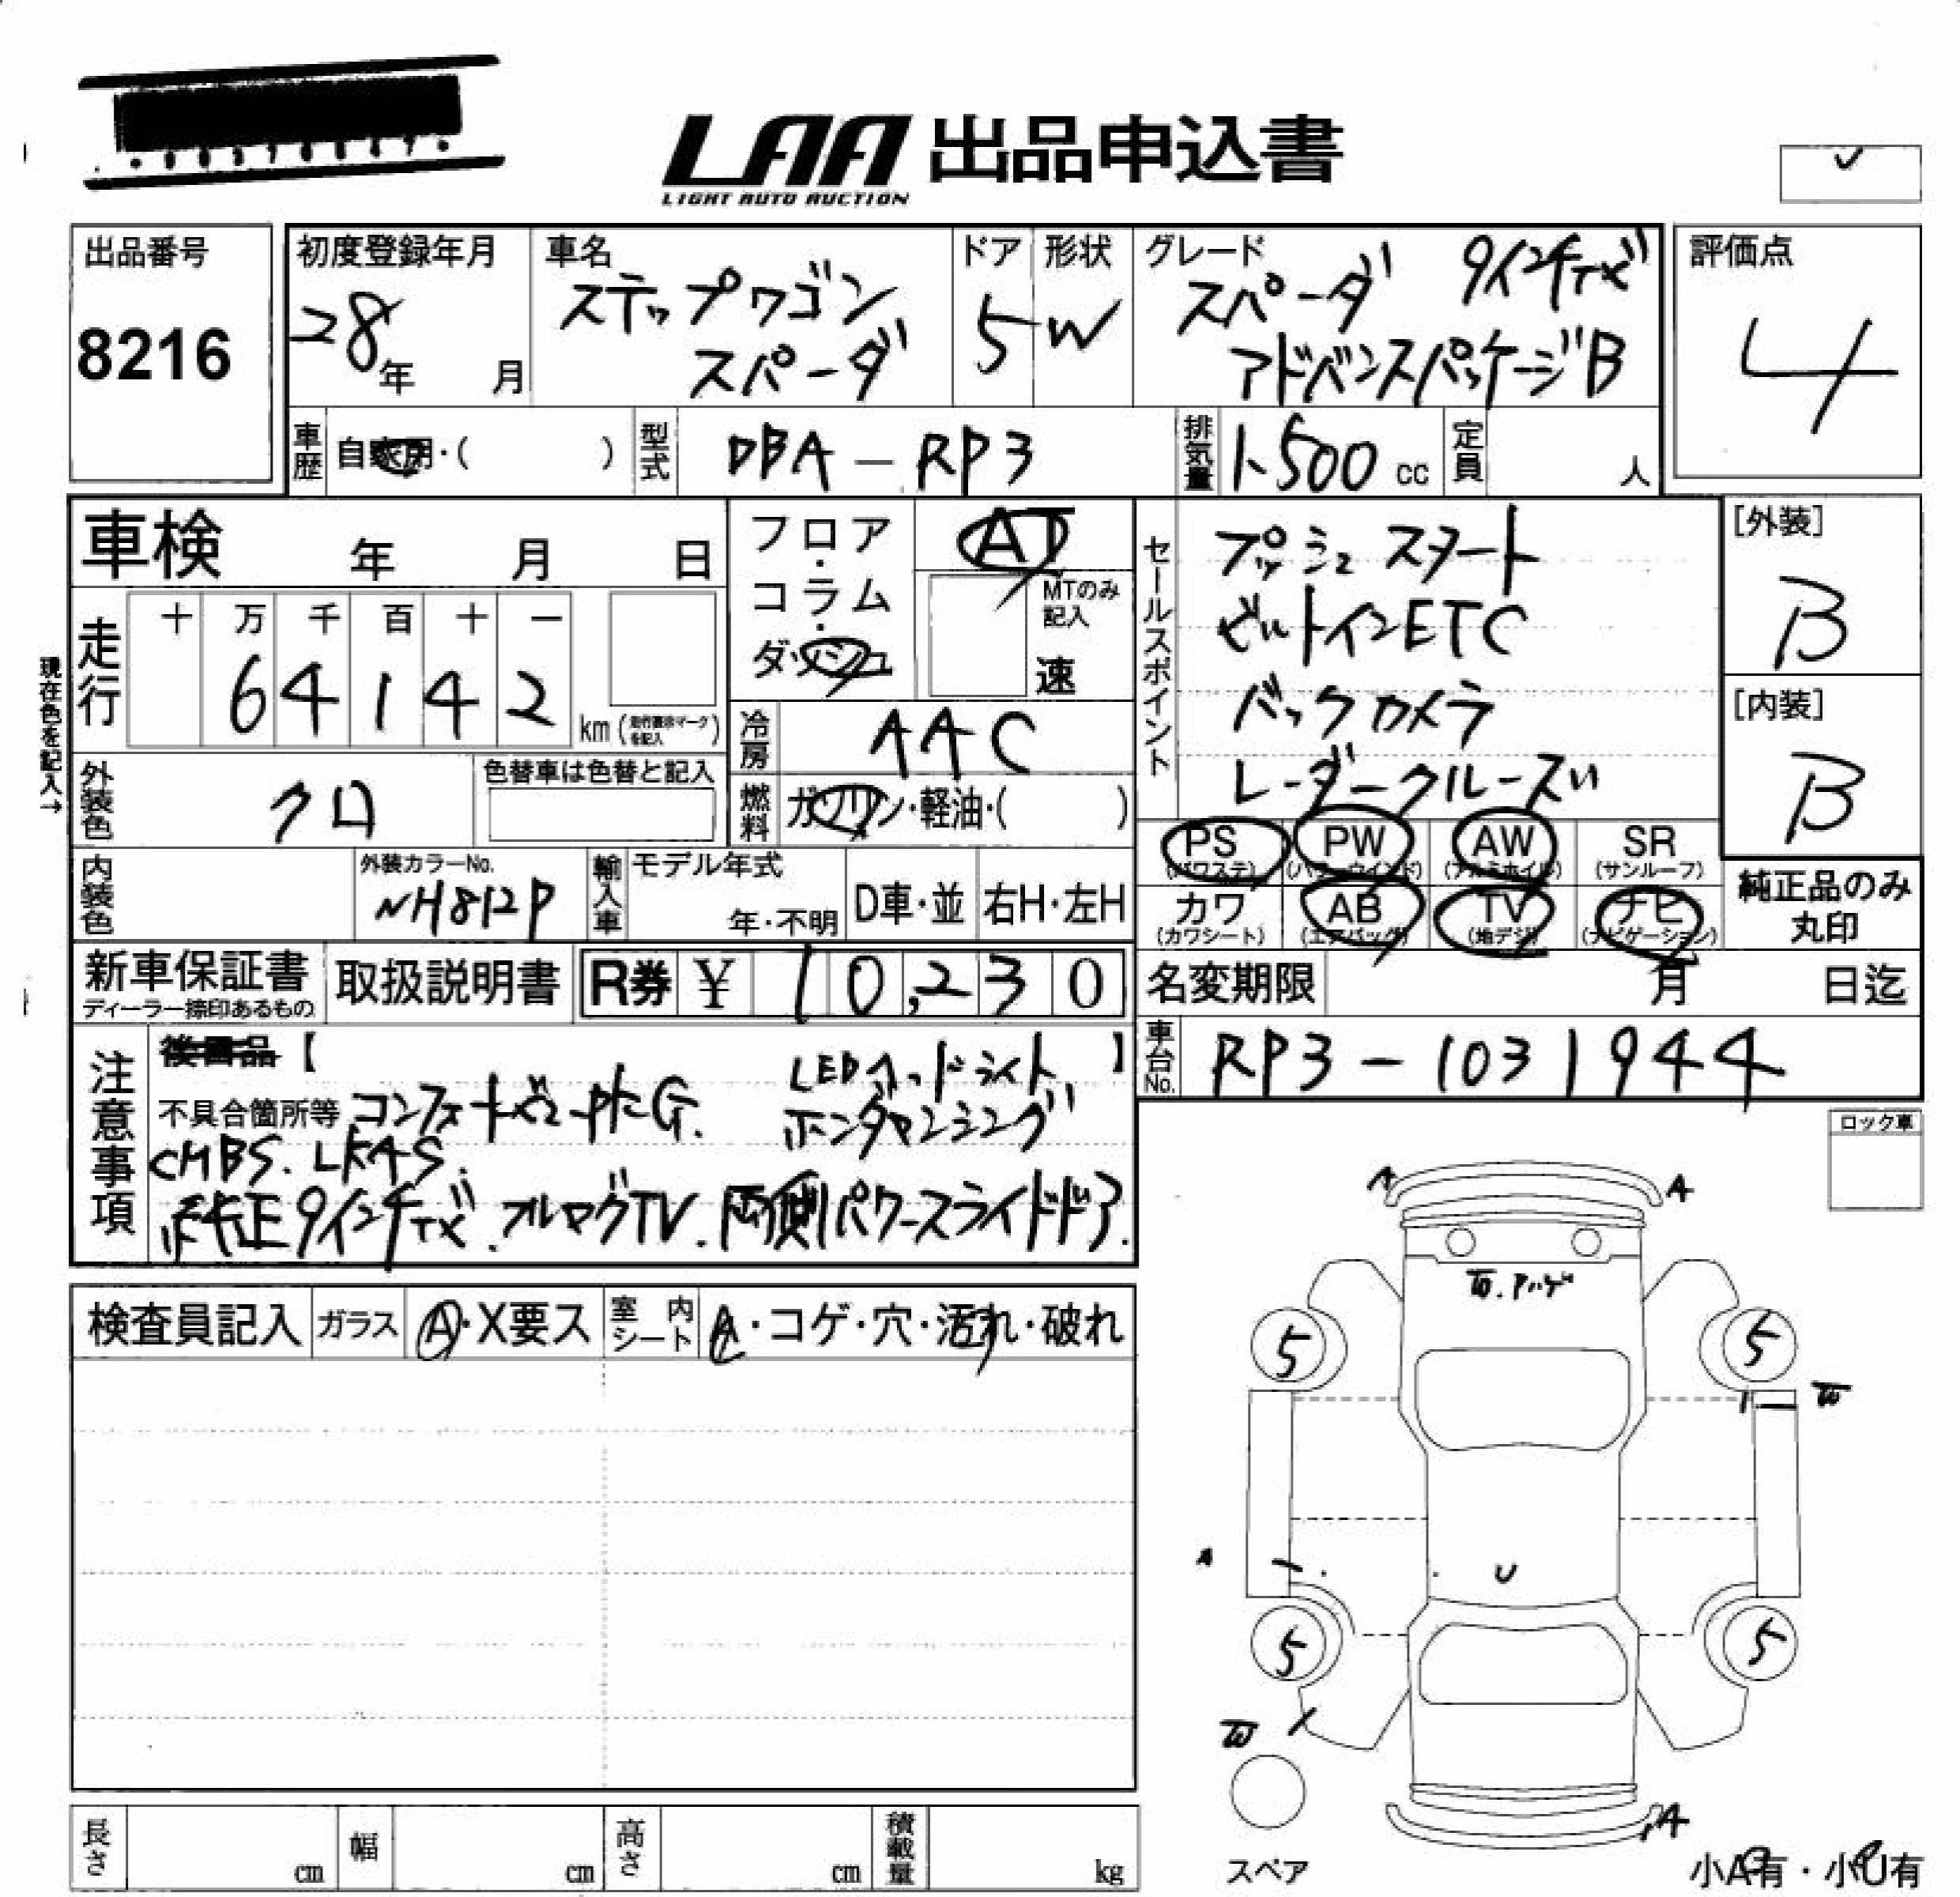 LAA 出品申込書
LIGHT AUTO AUCTION
出品番号
8216
初度登録年月
28年 月
車名
ステップワゴン
スパーダ
ドア
5
形状
W
グレード
スパーダ 9インチナビ
アドバンスパッケージB
評価点
4
車歴 自家用・( )
型式 DBA-RP3
排気量 1,500 cc
定員 人
車検 年 月 日
フロア・コラム・ダッシュ
AT
MTのみ記入
速
走行
十 万 千 百 十 一
6 4 1 4 2
km(走行表示マークを記入)
現在色を記入→
冷房 AAC
外装色 クロ
色替車は色替と記入
燃料 ガソリン・軽油・( )
内装色
外装カラーNo.
NH812P
輸入車
モデル年式
年・不明
D車・並
右H・左H
セールスポイント
プッシュスタート
ビルトインETC
バックカメラ
レーダークルーズ
[外装]
B
[内装]
B
PS(パワステ) PW(パワーウインド) AW(アルミホイル) SR(サンルーフ)
カワ(カワシート) AB(エアバッグ) TV(地デジ) ナビ(ナビゲーション)
純正品のみ
丸印
新車保証書
ディーラー捺印あるもの
取扱説明書
R券 ¥ 10,230
名変期限 月 日迄
車台No. RP3-1031944
注意事項
後日品【 】
LEDヘッドライト
不具合箇所等 コンフォートビューPKG. ホンダセンシング
CMBS. LKAS.
純正9インチナビ.フルセグTV.両側パワースライドドア.
ロック車
検査員記入
ガラス A・X要ス
室内シート A・コゲ・穴・汚れ・破れ
A A
5 5
A U
5 5
A
スペア
小A有・小U有
長さ cm
幅 cm
高さ cm
積載量 kg